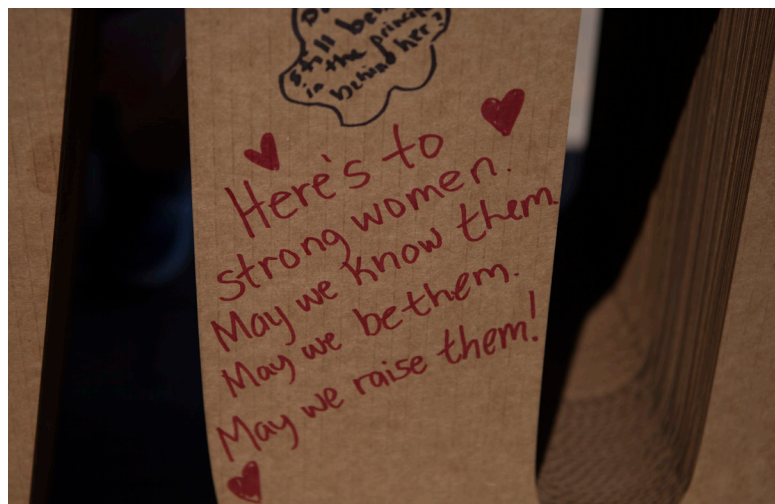 still
in the
behind her?
Here's to
strong women.
May we know them.
May we be them.
May we raise them!